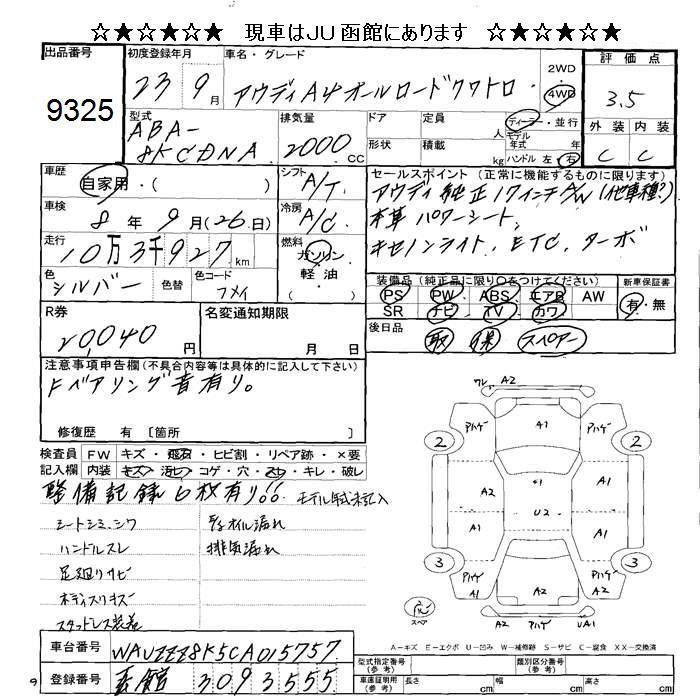 ☆★☆★☆★ 現車はJU函館にあります ☆★☆★☆★
出品番号
9325
初度登録年月
23 9月
車名・グレード
アウディ A4オールロードクワトロ
2WD
4WD
評価点
3.5
外装 内装
C C
型式
ABA-
8KCDNA
排気量
2000 CC
ドア
定員 人
形状
積載 kg
ディーラー・並行
モデル年式 年
ハンドル 左・右
車歴
自家用・( )
シフト
A/T
車検
8年9月(26日)
冷房
A/C
走行
10万3千927km
燃料
ガソリン
軽油
( )
色
シルバー
色替
色コード
フメイ
セールスポイント (正常に機能するものに限ります)
アウディ純正17インチA/W(他車種?)
本革パワーシート、
キセノンライト、ETC、ターボ
装備品 (純正品に限り〇をつけてください)
PS PW ABS エアB AW
SR ナビ TV カワ
新車保証書
有・無
後日品
取 保 スペアー
R券
20040円
名変通知期限
月 日
注意事項申告欄(不具合内容等は具体的に記入して下さい)
Fベアリング音有り。
修復歴 有 〔箇所 〕
検査員 FW キズ・飛石・ヒビ割・リペア跡・×要
記入欄 内装 キズ・汚れ・コゲ・穴・スレ・キレ・破レ
整備記録6枚有り。 モデル年式未記入
シートシミ、シワ
ハンドルスレ
足廻りサビ
ボディスリキズ
スタッドレス装着
オイル漏れ
排気漏れ
ワレ A2
アハゲ A1 アハゲ
2 2
A2 A1 A2
U2
A1 A1
3 3
アハゲ A2 アハゲ A2
A2 アハゲ UA1
スペア
A－キズ E－エクボ U－凹み W－補修跡 S－サビ C－腐食 XX－交換済
車台番号
WAUZZZ8K5CA015757
登録番号
函館 309 3555
型式指定番号(参考)
類別区分番号(参考)
車庫証明用(参考)
長さ cm
幅 cm
高さ cm